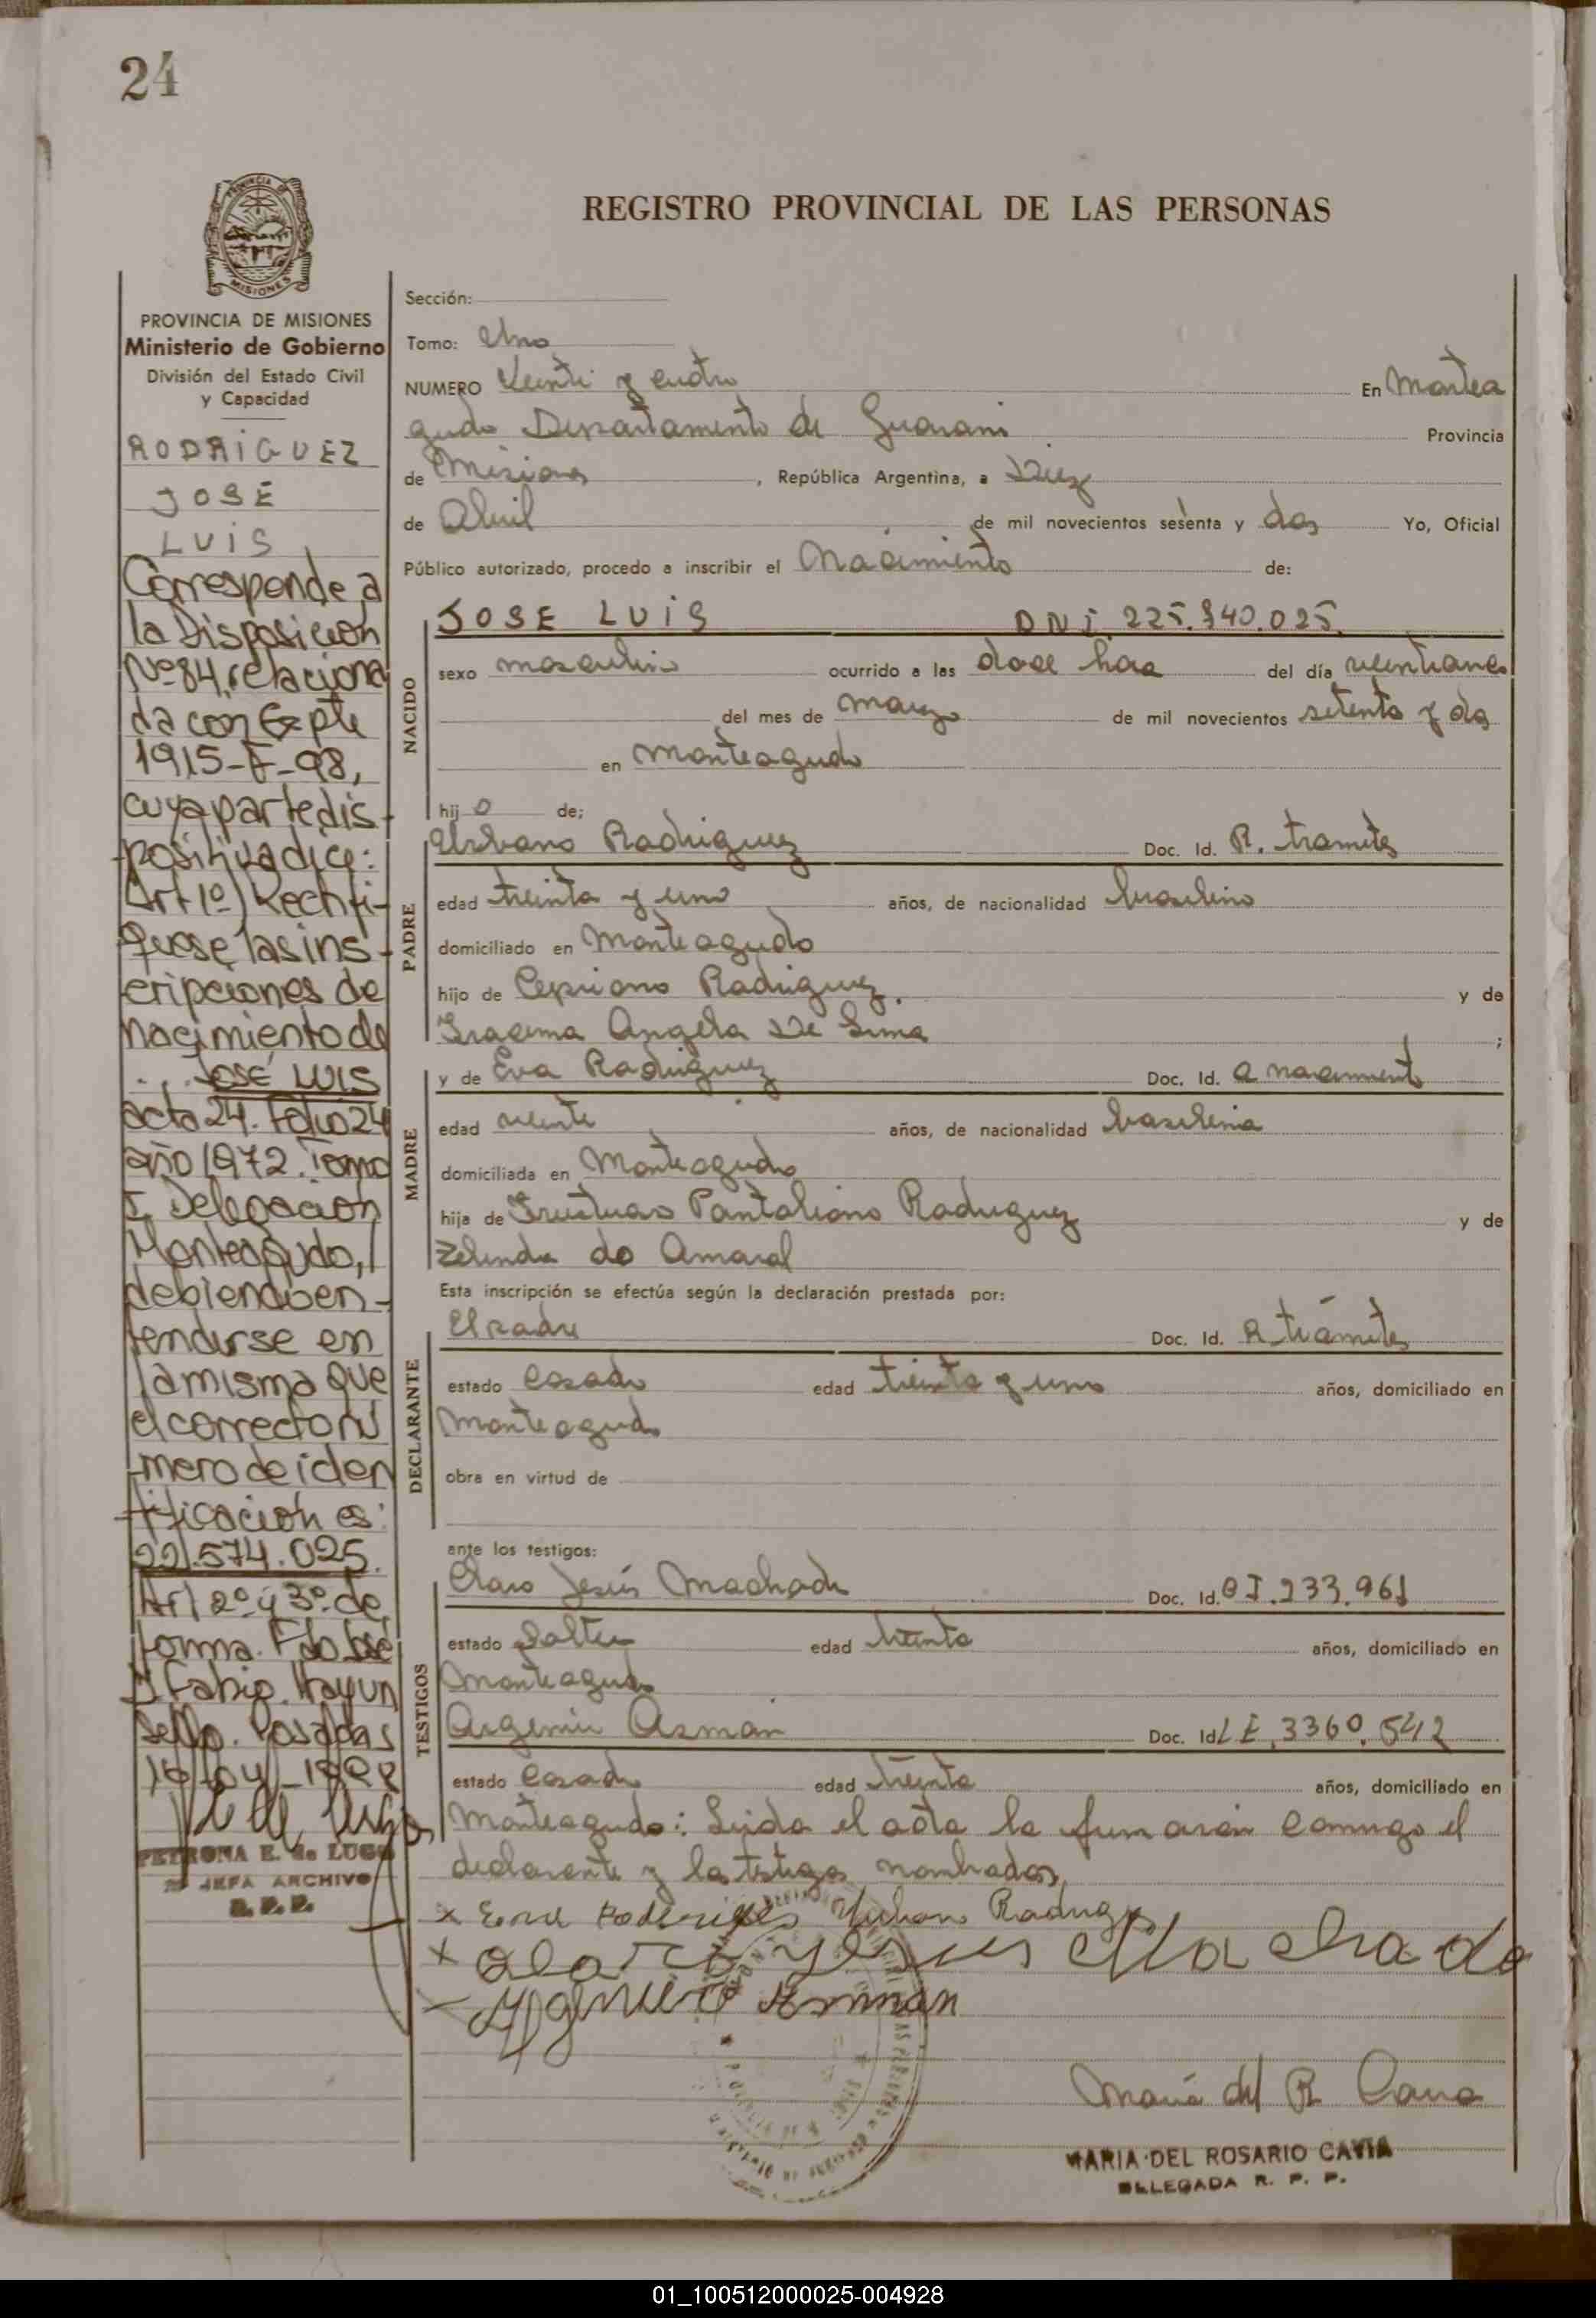 24
REGISTRO PROVINCIAL DE LAS PERSONAS
PROVINCIA DE MISIONES
MISIONES
PROVINCIA DE MISIONES
Ministerio de Gobierno
División del Estado Civil
y Capacidad
RODRIGUEZ
JOSE
LUIS
Corresponde a
la Disposicion
Nº 84, relaciona
da con Expte
1915-F-98,
cuya parte dis-
positiva dice:
Art 1º) Rectifi-
quese las ins-
cripciones de
nacimiento de
JOSE LUIS
acta 24. Folio 24
año 1972. Tomo
I Delegacion
Monteagudo,
debiendo en-
tenderse en
la misma que
el correcto nú
mero de iden
tificacion es:
22.574.025.
Art 2º y 3º de
forma. Fdo José
Fabio
Sello. Posadas
PETRONA E. de LUGO
JEFA ARCHIVO
R. P. P.
Sección:
Tomo: Uno
NUMERO Veinti y cuatro En Montea
gudo Departamento de Guarani Provincia
de Misiones, República Argentina, a Diez
de Abril de mil novecientos sesenta y dos Yo, Oficial
Público autorizado, procedo a inscribir el Nacimiento de:
NACIDO
JOSE LUIS DNI 225.340.025.
sexo masculino ocurrido a las doce hora del día
del mes de marzo de mil novecientos setenta y dos
en Monteagudo
hij o de;
PADRE
Urbano Rodriguez Doc. Id. R. tramites
edad treinta y uno años, de nacionalidad brasilino
domiciliado en Monteagudo
hijo de Cepriano Rodriguez. y de
Iracema Angela De Lima ;
MADRE
y de Eva Rodriguez Doc. Id. a nacimiento
edad veinte años, de nacionalidad brasilenia
domiciliada en Monteagudo
hija de Pantaliano Rodriguez y de
Zelinda do Amaral
Esta inscripción se efectúa según la declaración prestada por:
DECLARANTE
El padre Doc. Id. R trámites
estado Casado edad treinta y uno años, domiciliado en
Monteagudo
obra en virtud de
ante los testigos:
TESTIGOS
Claro Jesús Machado Doc. Id. CI.233.961
estado Solter edad treinta años, domiciliado en
Monteagudo
Argemiu Asman Doc. Id LE.3360.542
estado Casado edad treinta años, domiciliado en
Monteagudo: Leida el acta la firmaran conmigo el
declarante y los testigos nombrados
x Rodrigues Urbano Rodrigu
x Claro Yesus Machado
Asman
Maria del R Cavia
MARIA DEL ROSARIO CAVIA
DELEGADA R. P. P.
01_100512000025-004928